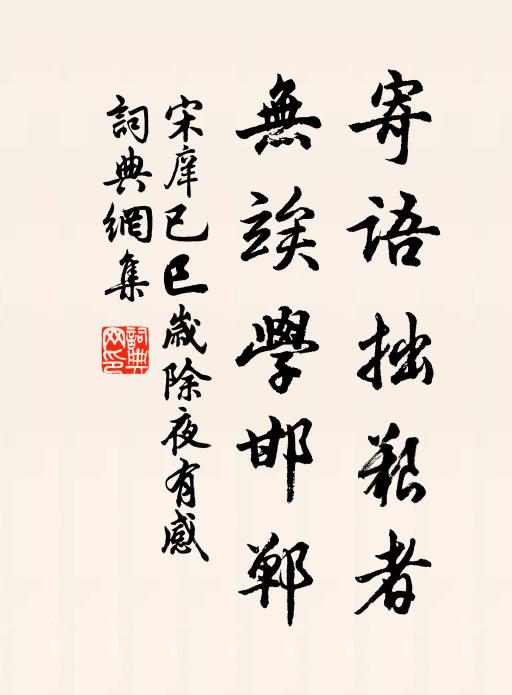 寄語拙艱者
無竢學邯鄲
宋庠己巳歲除夜有感
詞典網集
詞典网印